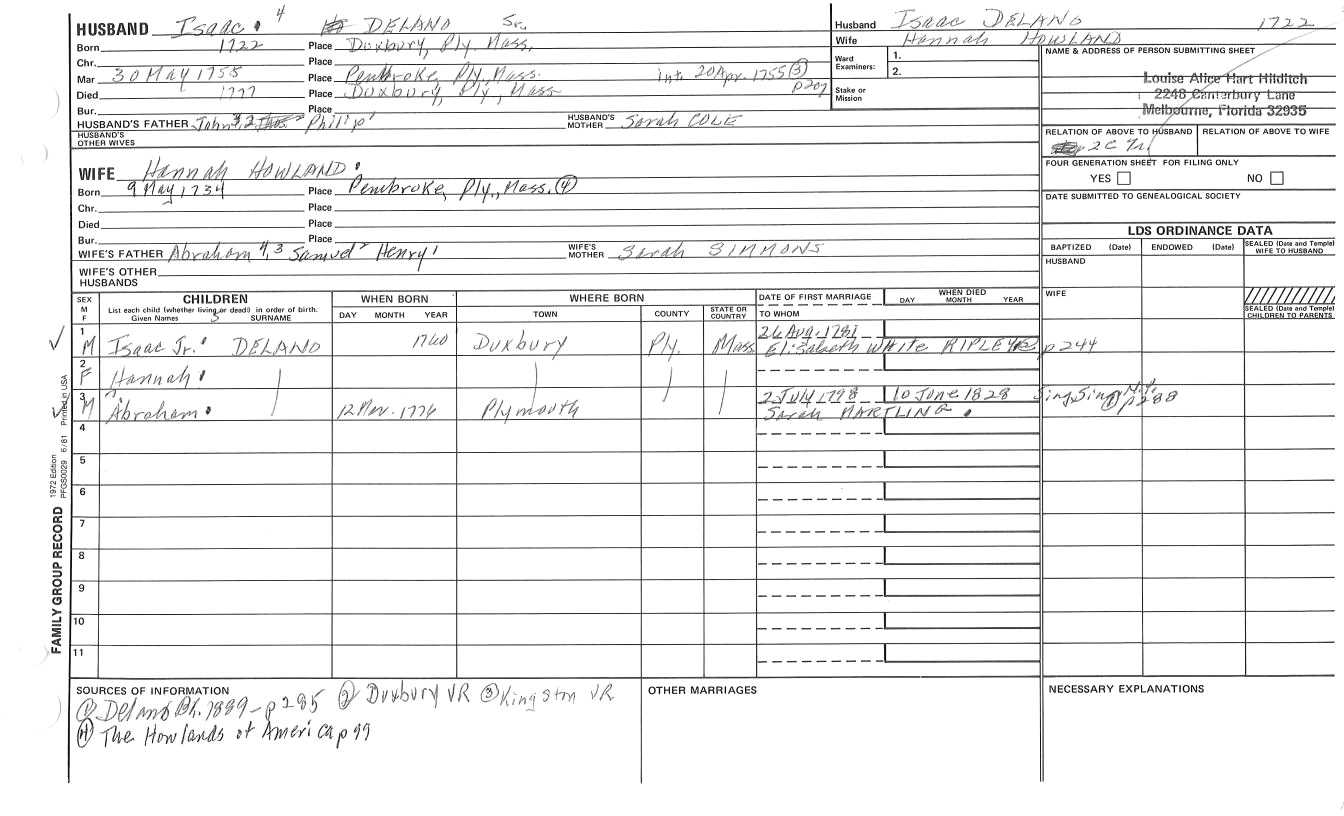 HUSBAND Isaac 4 DELANO Sr.
Born 1722 Place Duxbury, Ply. Mass.
Chr. Place
Mar 30 May 1755 Place Pembroke, Ply, Mass. int. 20 Apr. 1755 (3) p207
Died 1777 Place Duxbury, Ply, Mass
Bur. Place
HUSBAND'S FATHER John 3, 2 Philip 1 HUSBAND'S MOTHER Sarah COLE
HUSBAND'S OTHER WIVES
WIFE Hannah HOWLAND
Born 9 May 1734 Place Pembroke, Ply., Mass. (4)
Chr. Place
Died Place
Bur. Place
WIFE'S FATHER Abraham 4, 3 Samuel 2 Henry 1 WIFE'S MOTHER Sarah SIMMONS
WIFE'S OTHER HUSBANDS
Husband Isaac DELANO 1722
Wife Hannah HOWLAND
Ward Examiners: 1.
2.
Stake or Mission
NAME & ADDRESS OF PERSON SUBMITTING SHEET
Louise Alice Hart Hilditch
2248 Canterbury Lane
Melbourne, Florida 32935
RELATION OF ABOVE TO HUSBAND RELATION OF ABOVE TO WIFE
FOUR GENERATION SHEET FOR FILING ONLY
YES NO
DATE SUBMITTED TO GENEALOGICAL SOCIETY
LDS ORDINANCE DATA
BAPTIZED (Date) ENDOWED (Date) SEALED (Date and Temple) WIFE TO HUSBAND
HUSBAND
WIFE
SEALED (Date and Temple) CHILDREN TO PARENTS
SEX M F
CHILDREN
List each child (whether living or dead) in order of birth.
Given Names 5 SURNAME
WHEN BORN
DAY MONTH YEAR
WHERE BORN
TOWN COUNTY STATE OR COUNTRY
DATE OF FIRST MARRIAGE
TO WHOM
WHEN DIED
DAY MONTH YEAR
1 M Isaac Jr. DELANO 1760 Duxbury Ply. Mass 26 Aug. 1781
Elizabeth WHITE RIPLEY p 244
2 F Hannah
3 M Abraham 12 Mar. 1776 Plymouth 2 July 1798 10 June 1828 Sing Sing, N.Y.
Sarah MARTLING (1) p288
4
5
6
7
8
9
10
11
FAMILY GROUP RECORD 1972 Edition PFGS0029 6/81 Printed in USA
SOURCES OF INFORMATION
(1) Delano Gh. 1899 - p 285 (2) Duxbury VR (3) Kingston VR
(4) The Howlands of America p 99
OTHER MARRIAGES
NECESSARY EXPLANATIONS